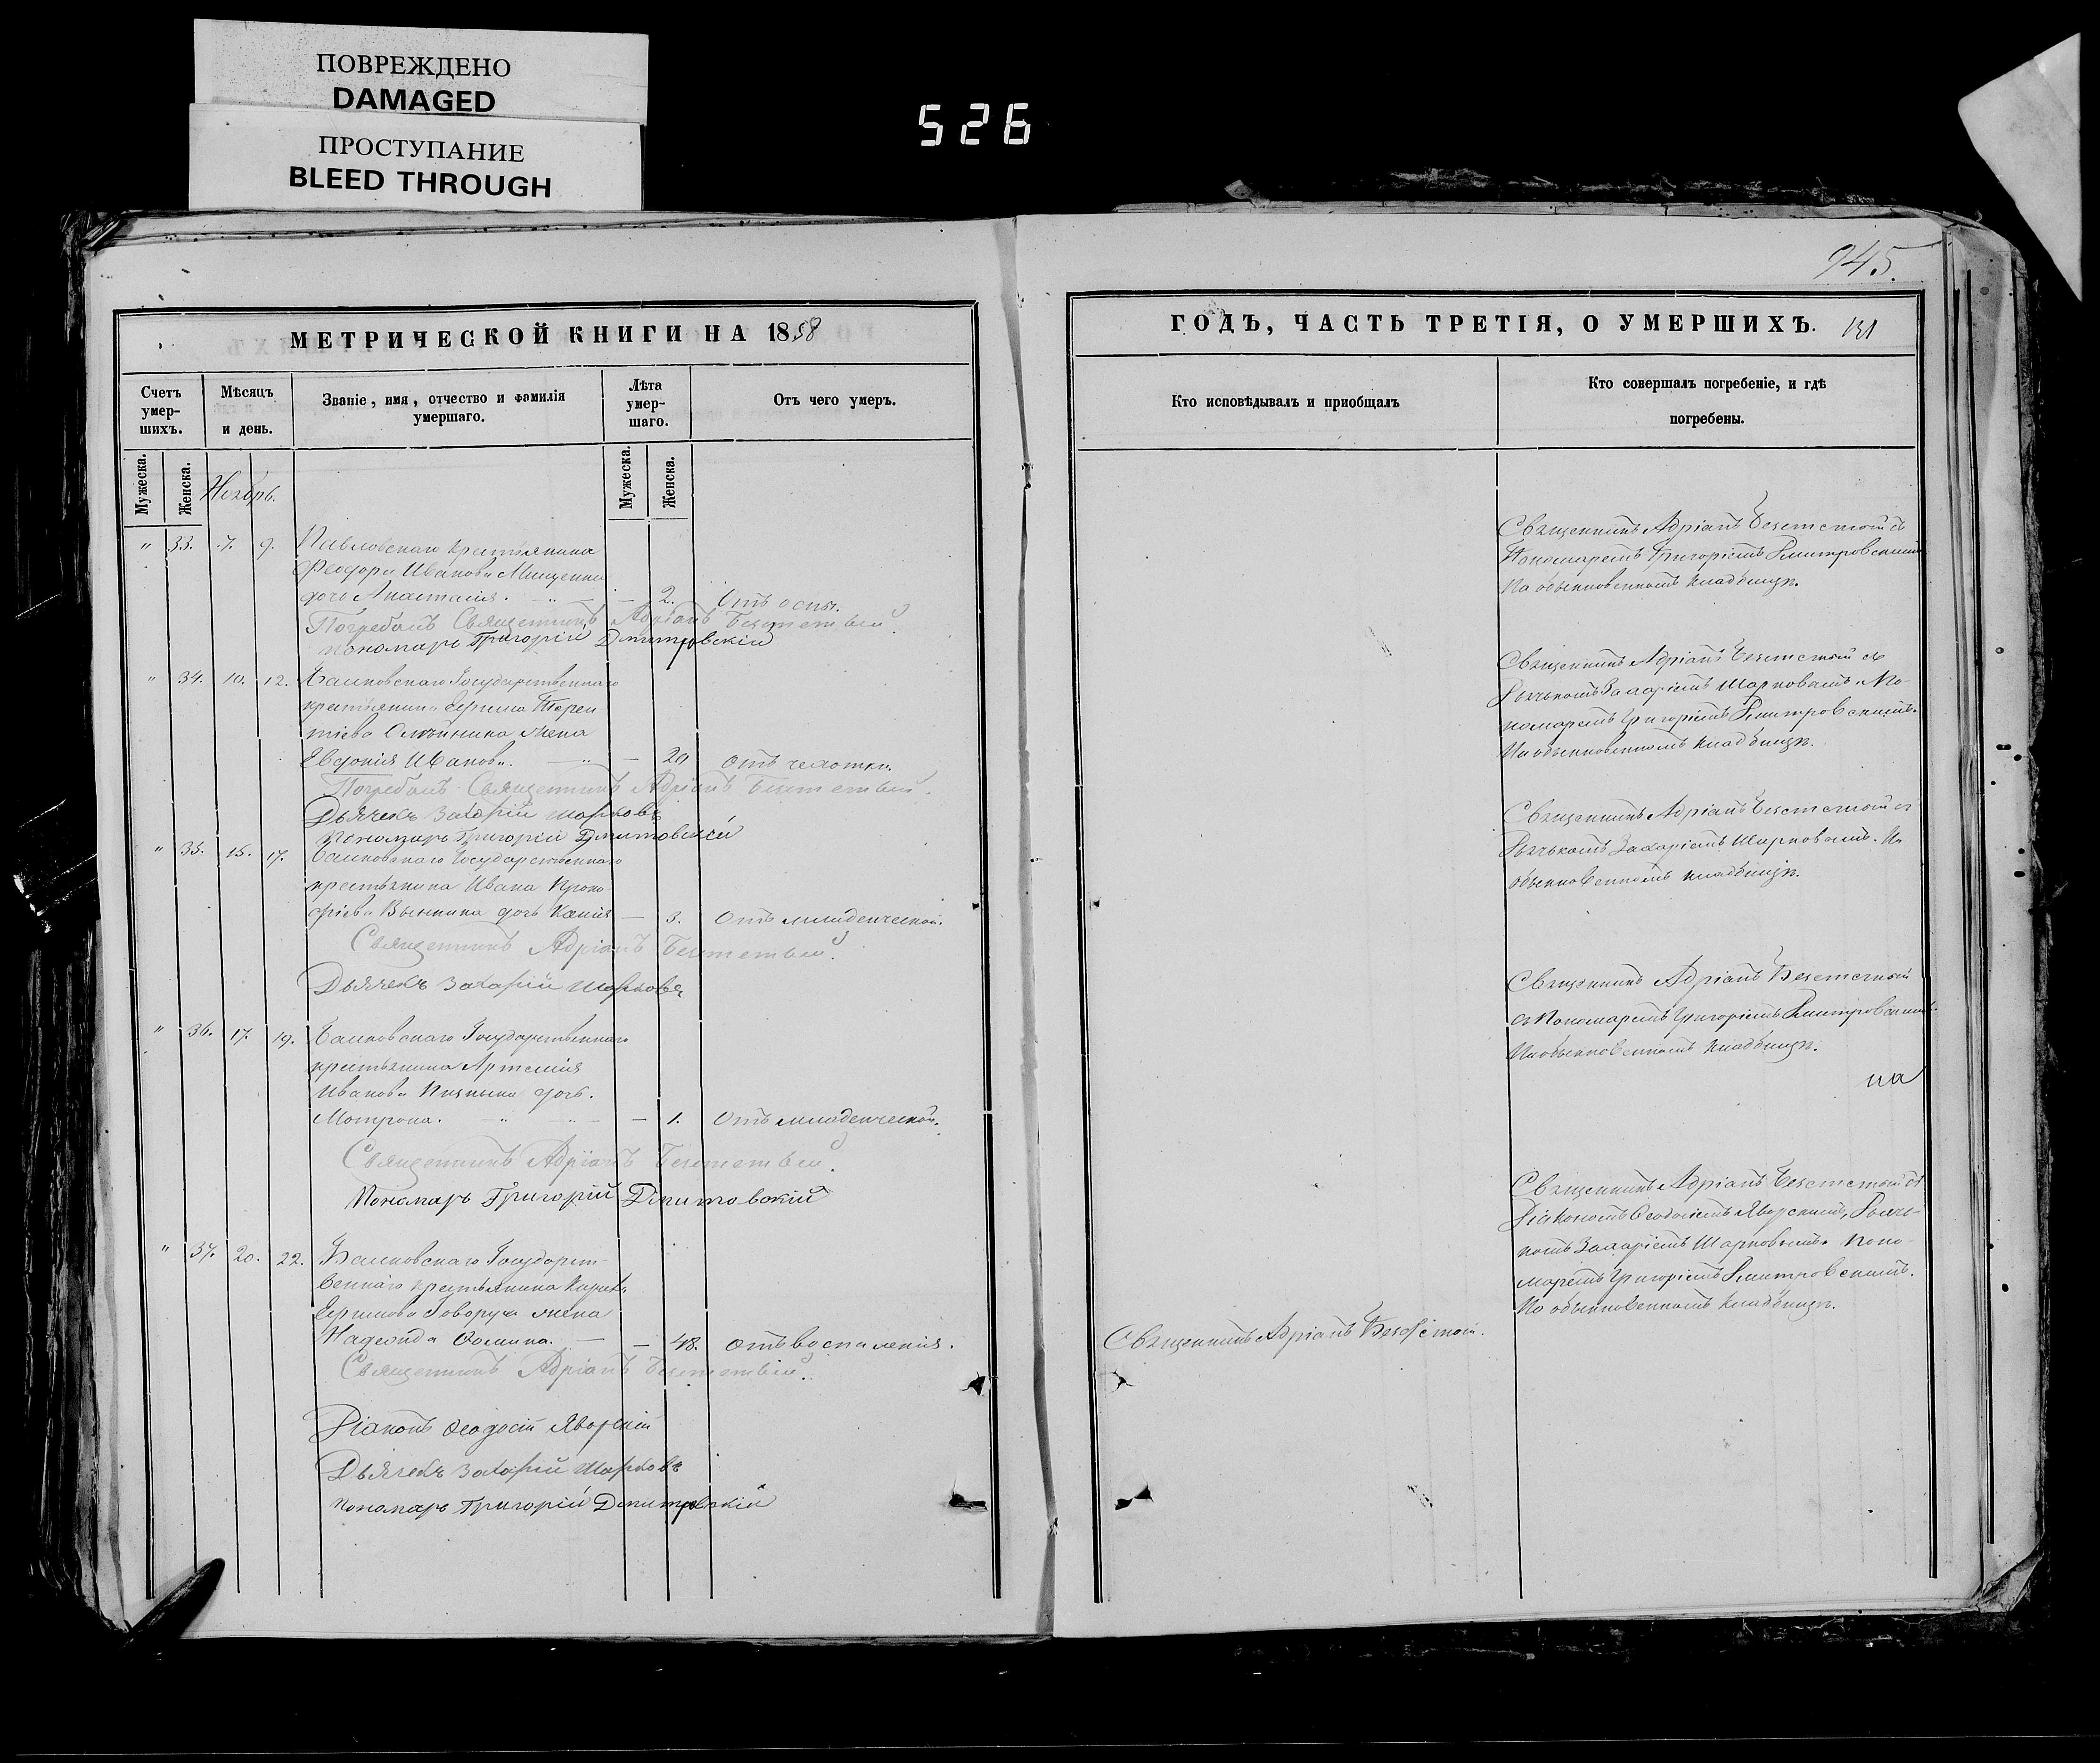 ПОВРЕЖДЕНО
DAMAGED
ПРОСТУПАНИЕ
BLEED THROUGH
526
945.
МЕТРИЧЕСКОЙ КНИГИ НА 1858
Счетъ умер-шихъ.
Мѣсяцъ и день.
Званіе, имя, отчество и фамилія умершаго.
Лѣта умер-шаго.
Отъ чего умеръ.
Мужеска.
Женска.
Ноябрь.
Мужеска.
Женска.
" 33. 7. 9. Павловскаго крестьянина
Феодора Иванова Мищенка
дочь Анастасія. — 2. Отъ оспы.
Погребалъ Священникъ Адріанъ
Пономарь Григорій Дмитровскій
" 34. 10. 12. Государственнаго
крестьянина Терен
тіева жена
Евдокія Иванова. — 20 отъ чахотки.
Погребалъ Священникъ Адріанъ
Дьячекъ Захарій Шарковъ
Пономарь Григорій Дмитовскій
" 35. 15. 17. Государственнаго
крестьянина Ивана Проко
фіева дочь — 3. Отъ младенческой.
Священникъ Адріанъ
Дьячекъ Захарій Шарковъ
" 36. 17. 19. Государственнаго
крестьянина Артемія
Иванова дочь.
Мотрона. — 1. Отъ младенческой.
Священникъ Адріанъ
Пономарь Григорій Дмитовскій
" 37. 20. 22. Государст-
веннаго крестьянина
Говоруха жена
Надежда Фомина. — 48. отъ воспаленія.
Священникъ Адріанъ
Діаконъ Феодосій Яворскій
Дьячекъ Захарій Шарковъ
Пономарь Григорій Дмитровскій
ГОДЪ, ЧАСТЬ ТРЕТІЯ, О УМЕРШИХЪ. 131
Кто исповѣдывалъ и пріобщалъ
Кто совершалъ погребеніе, и гдѣ
погребены.
Священникъ Адріанъ съ
Пономаремъ Григоріемъ Дмитровскимъ
На обыкновенномъ кладбищѣ.
Священникъ Адріанъ съ
Дьячкомъ Захаріемъ Шарковымъ и По-
номаремъ Григоріемъ Дмитровскимъ.
На обыкновенномъ кладбищѣ.
Священникъ Адріанъ съ
Дьячкомъ Захаріемъ Шарковымъ. На
обыкновенномъ кладбищѣ.
Священникъ Адріанъ
съ Пономаремъ Григоріемъ Дмитровскимъ.
На обыкновенномъ кладбищѣ.
на
Священникъ Адріанъ съ
Діакономъ Феодосіемъ Яворскимъ, Дьяч-
комъ Захаріемъ Шарковымъ и Поно-
маремъ Григоріемъ Дмитровскимъ.
На обыкновенномъ кладбищѣ.
Священникъ Адріанъ